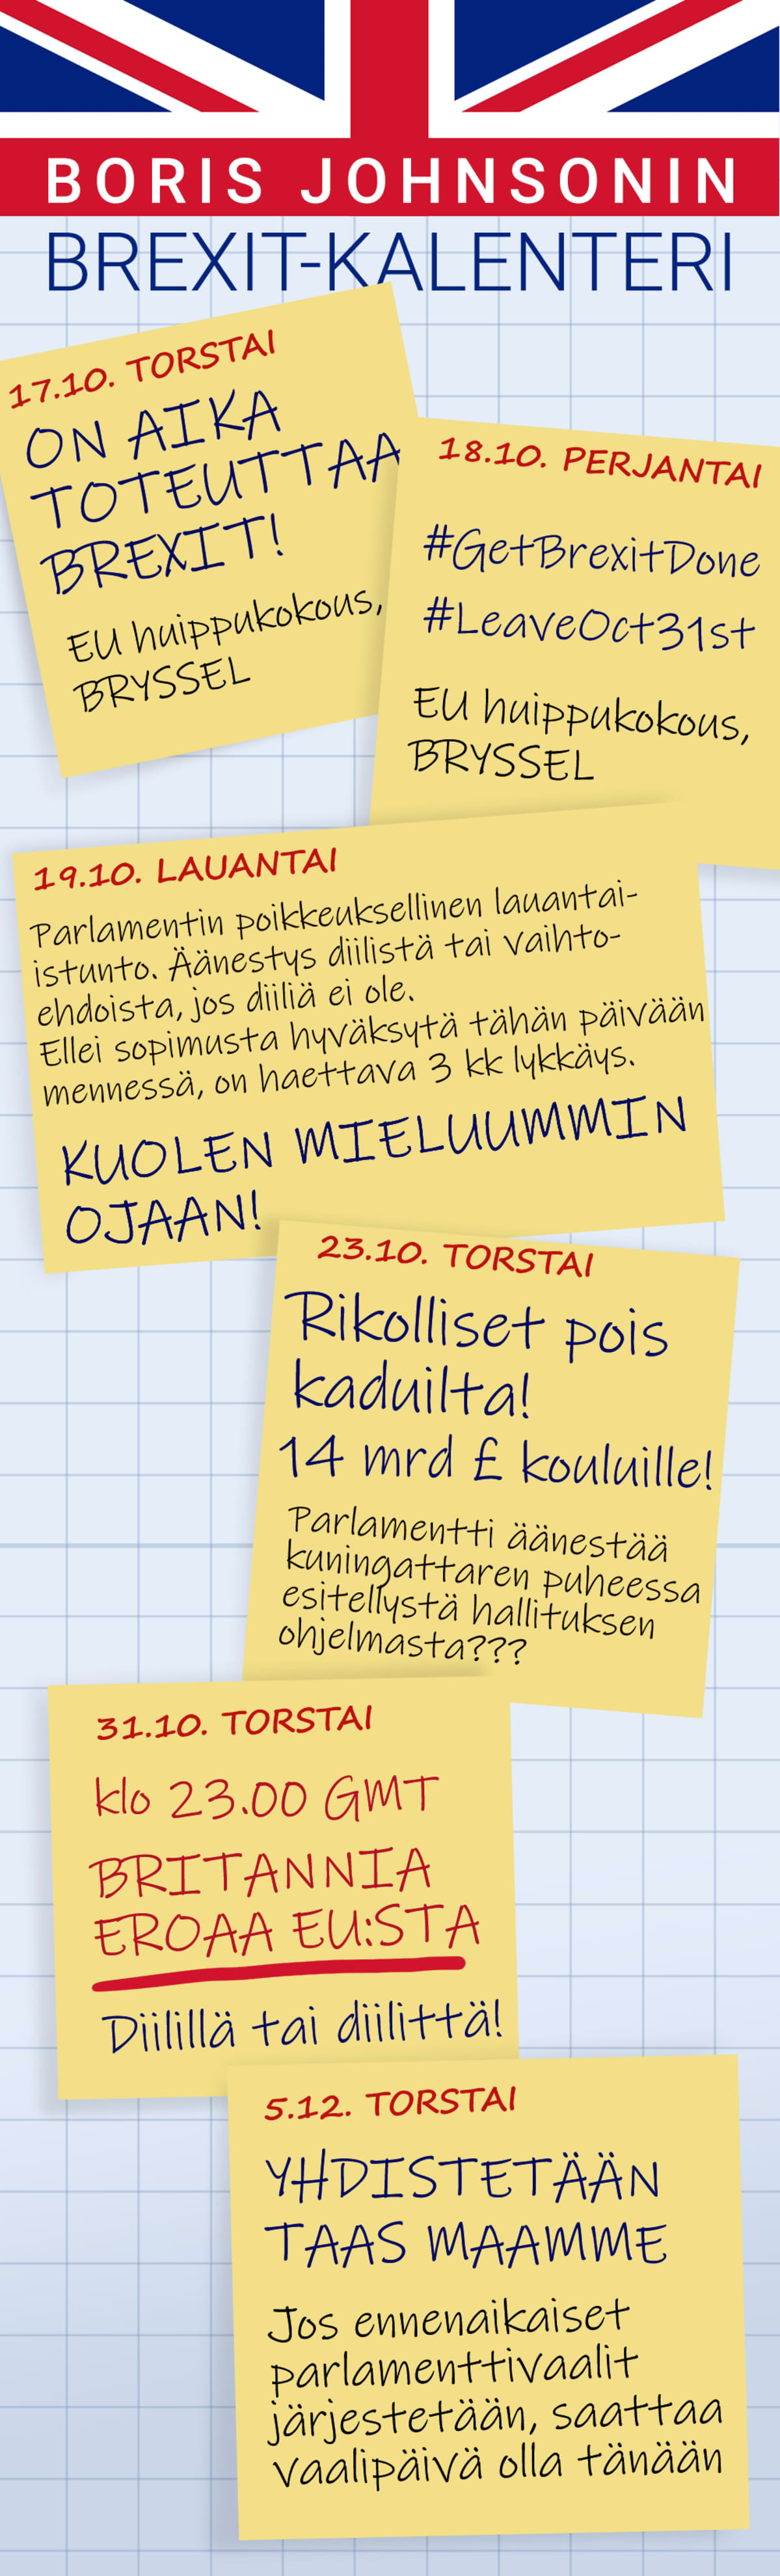 BORIS JOHNSONIN
BREXIT-KALENTERI
17.10. TORSTAI
ON AIKA
TOTEUTTAA
BREXIT!
EU huippukokous,
BRYSSEL
18.10. PERJANTAI
#GetBrexitDone
#LeaveOct31st
EU huippukokous,
BRYSSEL
19.10. LAUANTAI
Parlamentin poikkeuksellinen lauantai-
istunto. Äänestys diilistä tai vaihto-
ehdoista, jos diiliä ei ole.
Ellei sopimusta hyväksytä tähän päivään
mennessä, on haettava 3 kk lykkäys.
KUOLEN MIELUUMMIN
OJAAN!
23.10. TORSTAI
Rikolliset pois
kaduilta!
14 mrd £ kouluille!
Parlamentti äänestää
kuningattaren puheessa
esitellystä hallituksen
ohjelmasta???
31.10. TORSTAI
klo 23.00 GMT
BRITANNIA
EROAA EU:STA
Diilillä tai diilittä!
5.12. TORSTAI
YHDISTETÄÄN
TAAS MAAMME
Jos ennenaikaiset
parlamenttivaalit
järjestetään, saattaa
vaalipäivä olla tänään